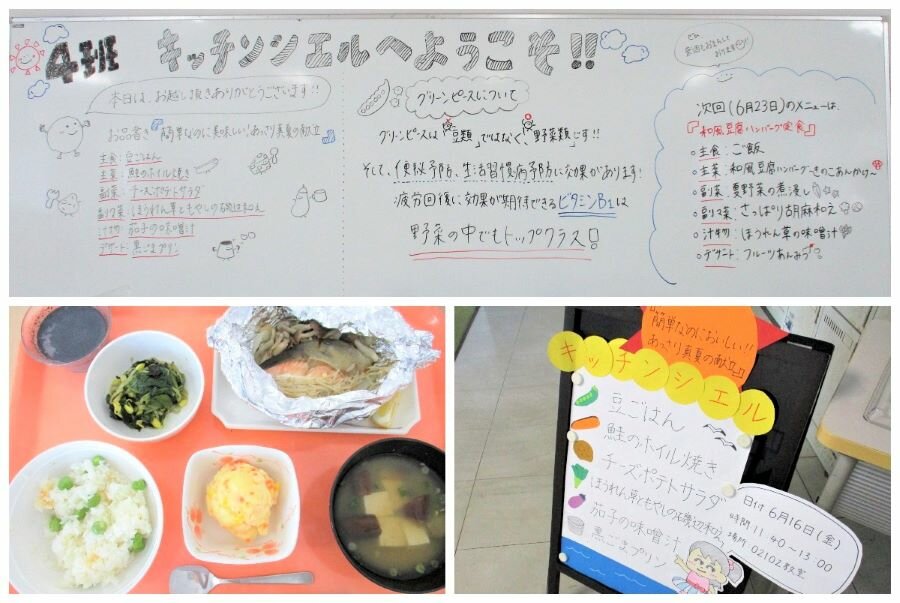 4班 キッチンシエルへようこそ!!
本日は、お越し頂きありがとうございます!!
お品書き 簡単なのに美味しい!あっさり真夏の献立
主食:豆ごはん
主菜:鮭のホイル焼き
副菜:チーズポテトサラダ
副々菜:ほうれん草ともやしの磯辺和え
汁物:茄子の味噌汁
デザート:黒ごまプリン
グリーンピースについて
グリーンピースは"豆類"ではなく、"野菜類"です!!
そして、便秘予防、生活習慣病予防に効果があります!
疲労回復に効果が期待できるビタミンB1は
野菜の中でもトップクラス!
次回(6月23日)のメニューは、
『和風豆腐ハンバーグ定食』
・主食:ご飯
・主菜:和風豆腐ハンバーグ〜きのこあんかけ〜
・副菜:夏野菜の煮浸し
・副々菜:さっぱり胡麻和え
・汁物:ほうれん草の味噌汁
・デザート:フルーツあんみつ
『簡単なのにおいしい!!
あっさり真夏の献立』
キッチンシエル
豆ごはん
鮭のホイル焼き
チーズポテトサラダ
ほうれん草ともやしの磯辺和え
茄子の味噌汁
黒ごまプリン
日付 6月16日(金)
時間 11:40〜13:00
場所 02102教室